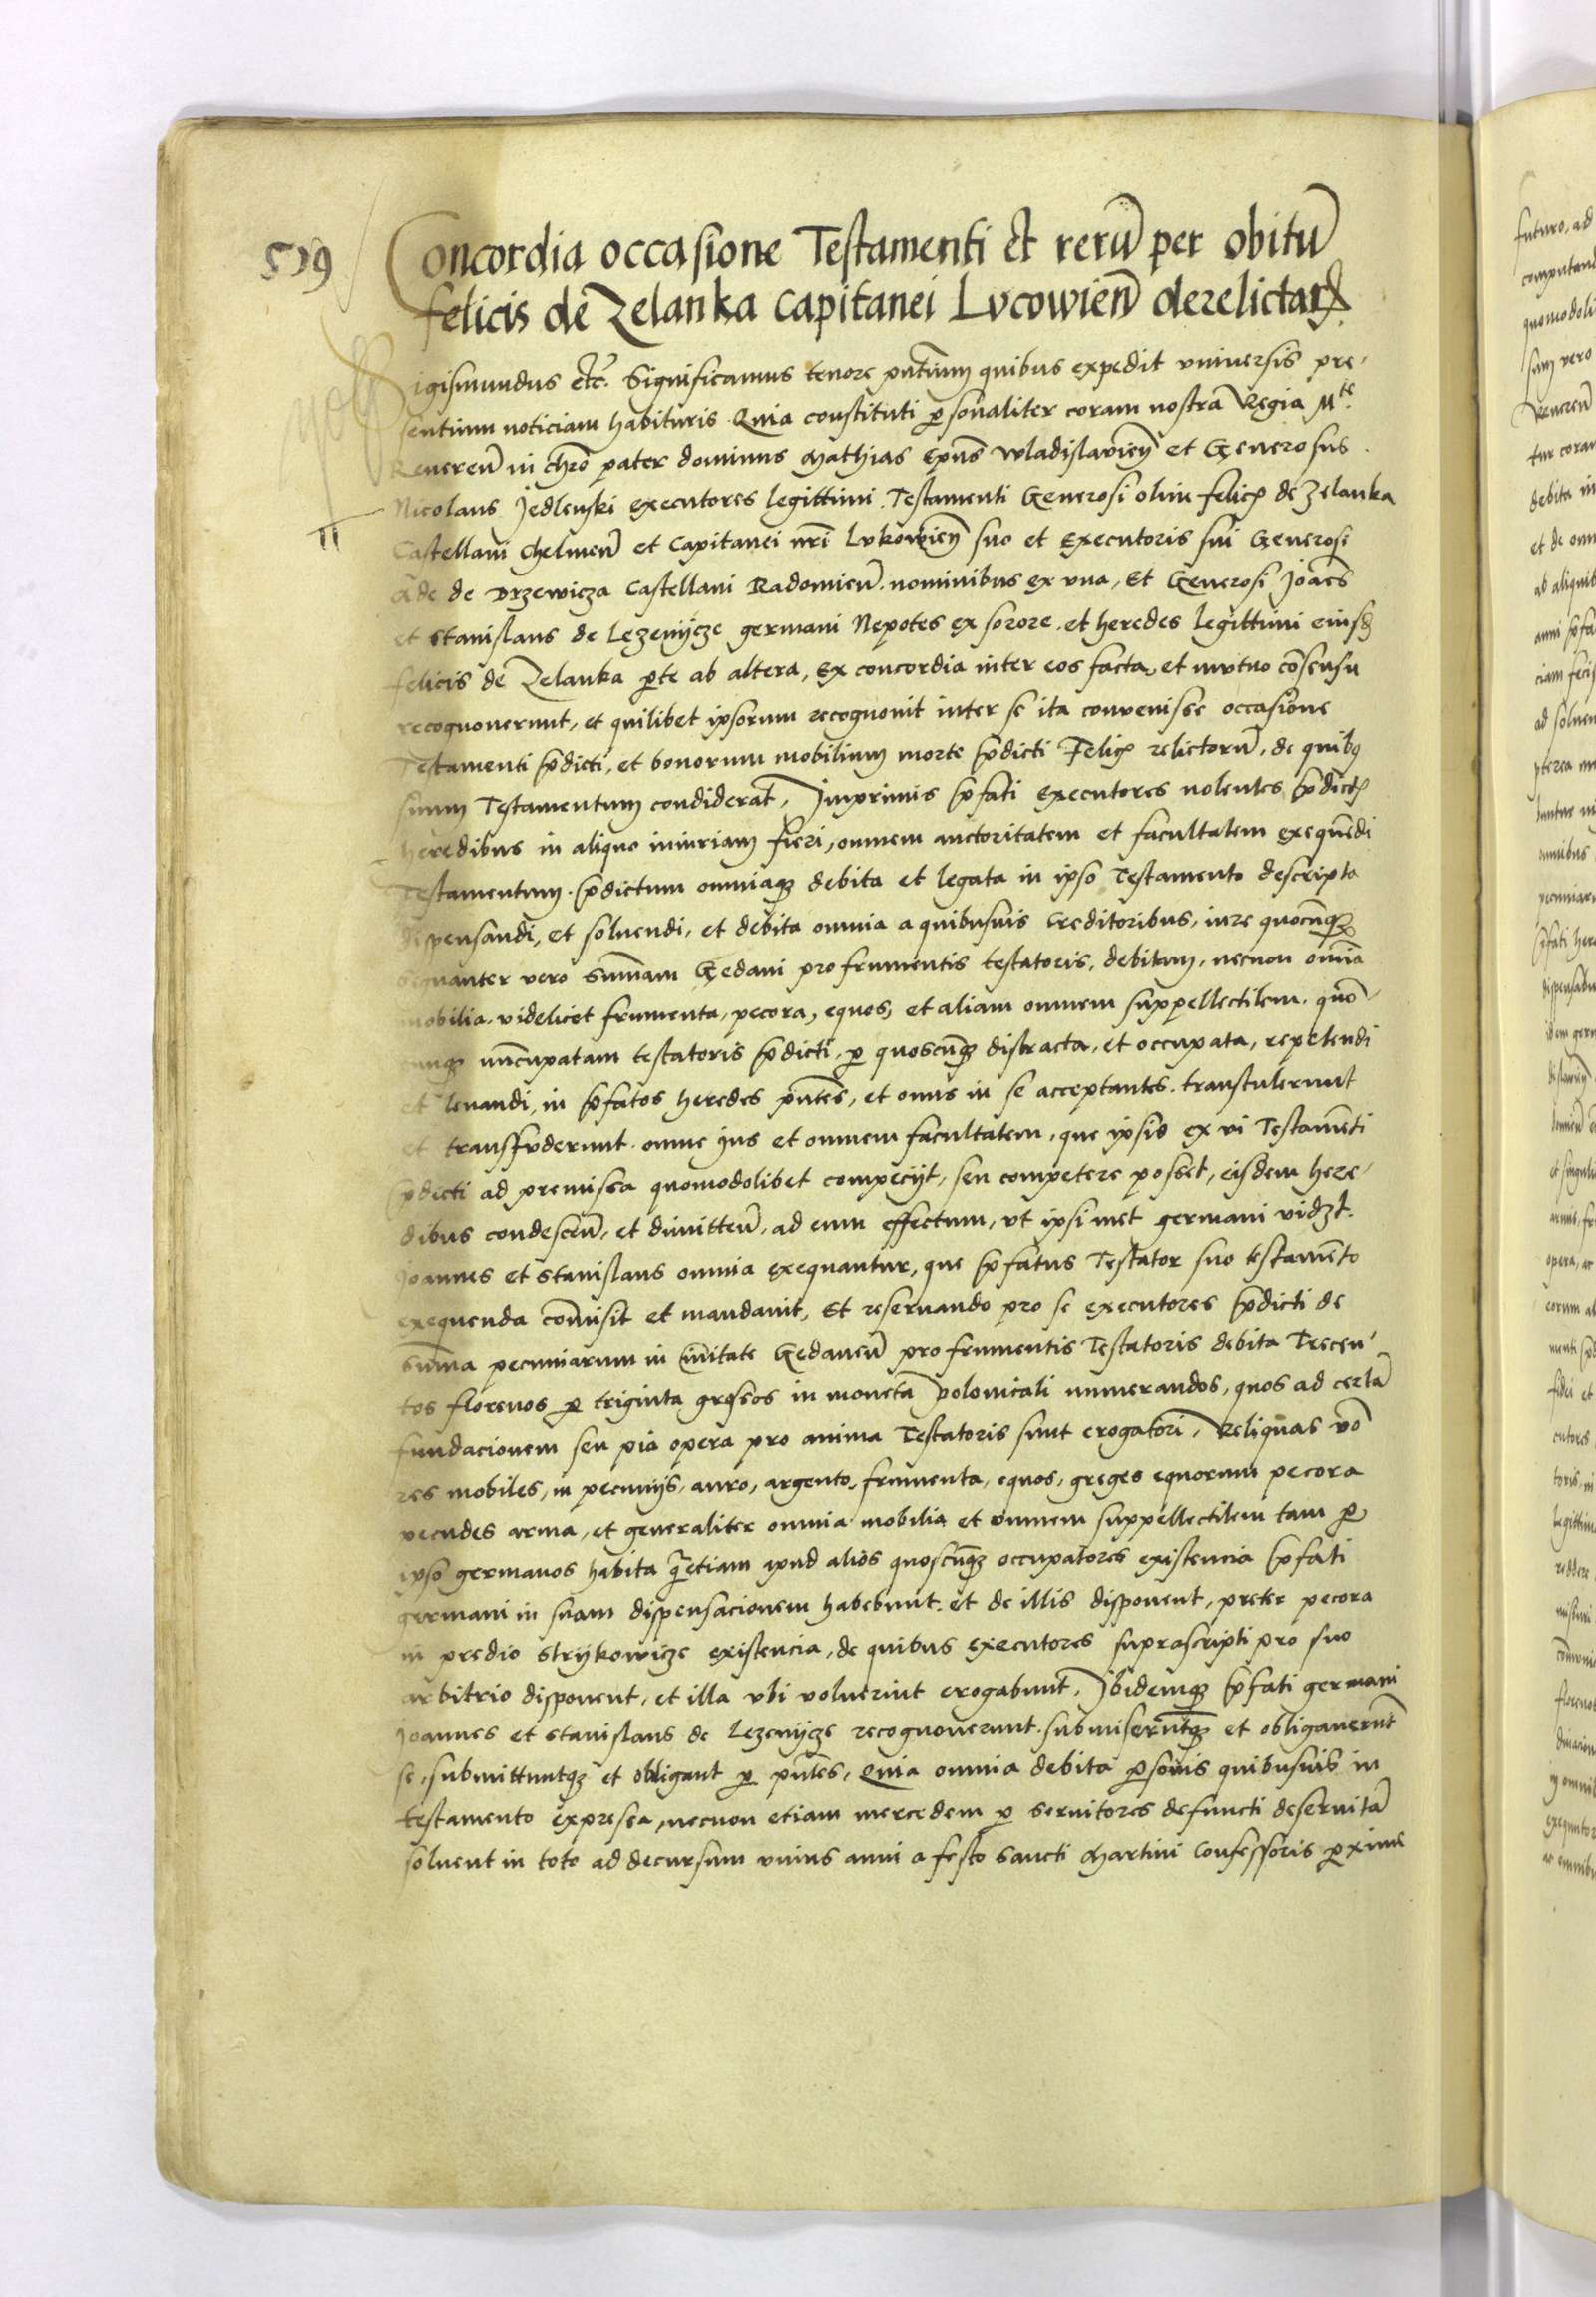 519
Concordia occasione Testamenti et rerū per obitū
felicis de Zelanka Capitanei Lucowieñ derelictarꝝ
Sigismundus etc̄. Significamus tenore pñtium quibus expedit vniversis pre-
sentium noticiam habituris Quia constituti ꝑsonaliter coram nostra Regia Mte.
Revereñ in chrō pater dominus Mathias Epūs Wladislavieñ et Generosus
Nicolaus Jedlenski executores legittimi Testamenti Generosi olim felicꝭ de Zelanka
Castellani Chelmeñ et Capitanei nrī Lukowieñ suo et Executoris sui Generosi
Ade de Drzewicza Castellani Radomieñ. nominibus ex una, Et Generosi Joāēs
et Stanislaus de Lezenijcze germani Nepotes ex sorore et heredes legittimi eiusd
felicis de Zelanka ꝑte ab altera, Ex concordia inter eos facta, et mutuo cōsensu
recognoverunt, et quilibet ipsorum recognovit inter se ita convenisse occasione
Testamenti p̄dicti, et bonorum mobilium morte p̄dicti Felicꝭ relictorū, de quibꝰ
suum Testamentum condiderat, Inprimis p̄fati Executores nolentes p̄dictꝭ
heredibus in aliquo iniuriam fieri, omnem auctoritatem et facultatem exequēdi
Testamentum p̄dictum omniaqꝫ debita et legata in ipso Testamento descripta
dispensandi, et solvendi, et debita omnia a quibusvis Creditoribus, iure quocūqꝫ
signanter vero summam Gedani pro frumentis testatoris, debitam, necnon omīa
mobilia videlicet frumenta, pecora, equos, et aliam omnem suppellectilem quō-
cunqꝫ nūcupatam testatoris p̄dicti, ꝑ quoscūqꝫ distracta, et occupata, repetendi
et levandi, in p̄fatos heredes p̄ntes, et onus in se acceptantes. transtulerunt
et transfuderunt omne ius et omnem facultatem, que ipsis ex vi Testamēti
p̄dicti ad premissa quomodolibet compecijt, seu competere posset, eisdem here-
dibus condesceñ, et dimitteñ, ad eum effectum, vt ipsimet germani vidꝫt.
Joannes et Stanislaus omnia exequantur, que p̄fatus Testator suo testamēto
exequenda comisit et mandavit, Et reservando pro se executores p̄dicti de
summa pecuniarum in civitate Gedaneñ pro frumentis Testatoris debita Trecen-
tos florenos ꝑ triginta grossos in moneta Polonicali numerandos, quos ad certā
fundacionem seu pia opera pro anima Testatoris sunt erogatori, Reliquas vō
res mobiles, in pecunijs, auro, argento, frumenta, equos, greges equorum pecora
pecudes arma, et generaliter omnia mobilia et omnem suppellectilem tam ꝑ
ipso germanos habita q̄etiam apud alios quoscūqꝫ occupatores existencia p̄fati
germani in suam dispensacionem habebunt. et de illis disponent, preter pecora
in predio Strijkowicze existencia, de quibus executores suprascripti pro suo
arbitrio disponent, et illa vbi voluerint erogabunt, Ibidemqꝫ p̄fati germani
Joannes et Stanislaus de Lezenijcze recognoverunt. submiserūtqꝫ et obligaverūt
se, submittuntqꝫ et obligant ꝑ pñtes, Quia omnia debita ꝑsonis quibusvis in
testamento expressa, necnon etiam mercedem ꝑ servitores defuncti deservitā
solvent in toto ad decursum vnius anni a festo Sancti Martini Confessoris ꝓxime